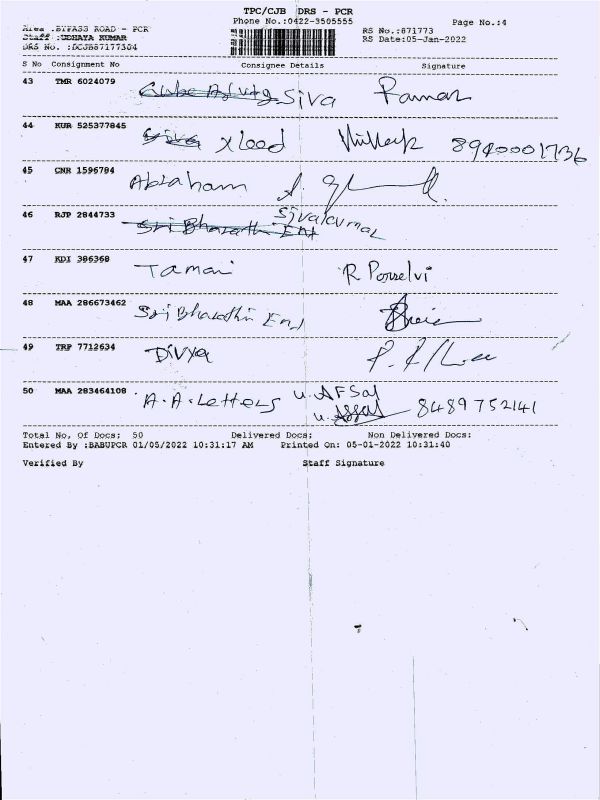 TPC/CJB DRS - PCR
Phone No.:0422-3505555 Page No.:4
Area :BYPASS ROAD - PCR
Staff :UDHAYA KUMAR
DRS No. :DCJB87177304
RS No.:871773
RS Date:05-Jan-2022
S No Consignment No Consignee Details Signature
43 TMR 6024079 Siva Raman
44 KUR 525377845 Xleed 8940001736
45 CNR 1596784 Abraham
46 RJP 2844733 Sri Bharathi Ent Sivakumar
47 KDI 386368 Tamari R Ponselvi
48 MAA 286673462 Sri Bharathi Ent
49 TRP 7712634 Divya
50 MAA 283464108 A.A.Letters U.AFSal
8489752141
Total No, Of Docs: 50 Delivered Docs: Non Delivered Docs:
Entered By :BABUPCR 01/05/2022 10:31:17 AM Printed On: 05-01-2022 10:31:40
Verified By Staff Signature